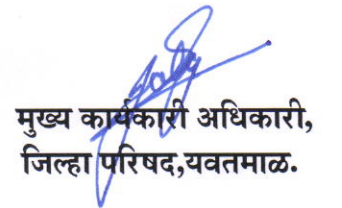 मुख्य कार्यकारी अधिकारी,
जिल्हा परिषद,यवतमाळ.